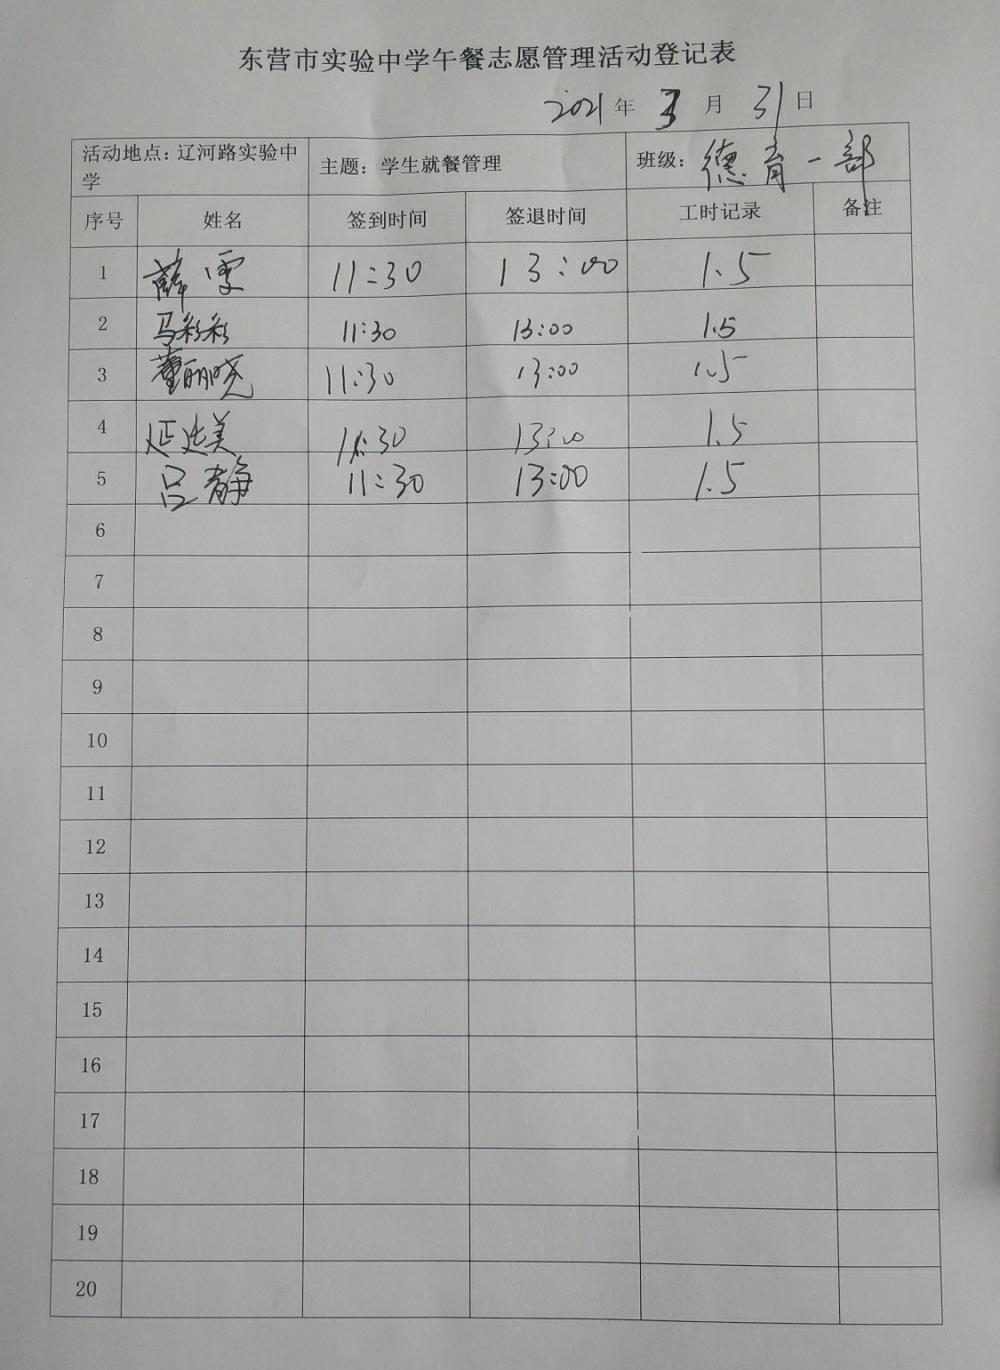 东营市实验中学午餐志愿管理活动登记表
2021年 3月 31日
活动地点：辽河路实验中学 主题：学生就餐管理 班级：德育一部
序号 姓名 签到时间 签退时间 工时记录 备注
1 薛雯 11:30 13:00 1.5
2 马彩彩 11:30 13:00 1.5
3 董丽晓 11:30 13:00 1.5
4 延达美 11:30 13:00 1.5
5 吕静 11:30 13:00 1.5
6
7
8
9
10
11
12
13
14
15
16
17
18
19
20